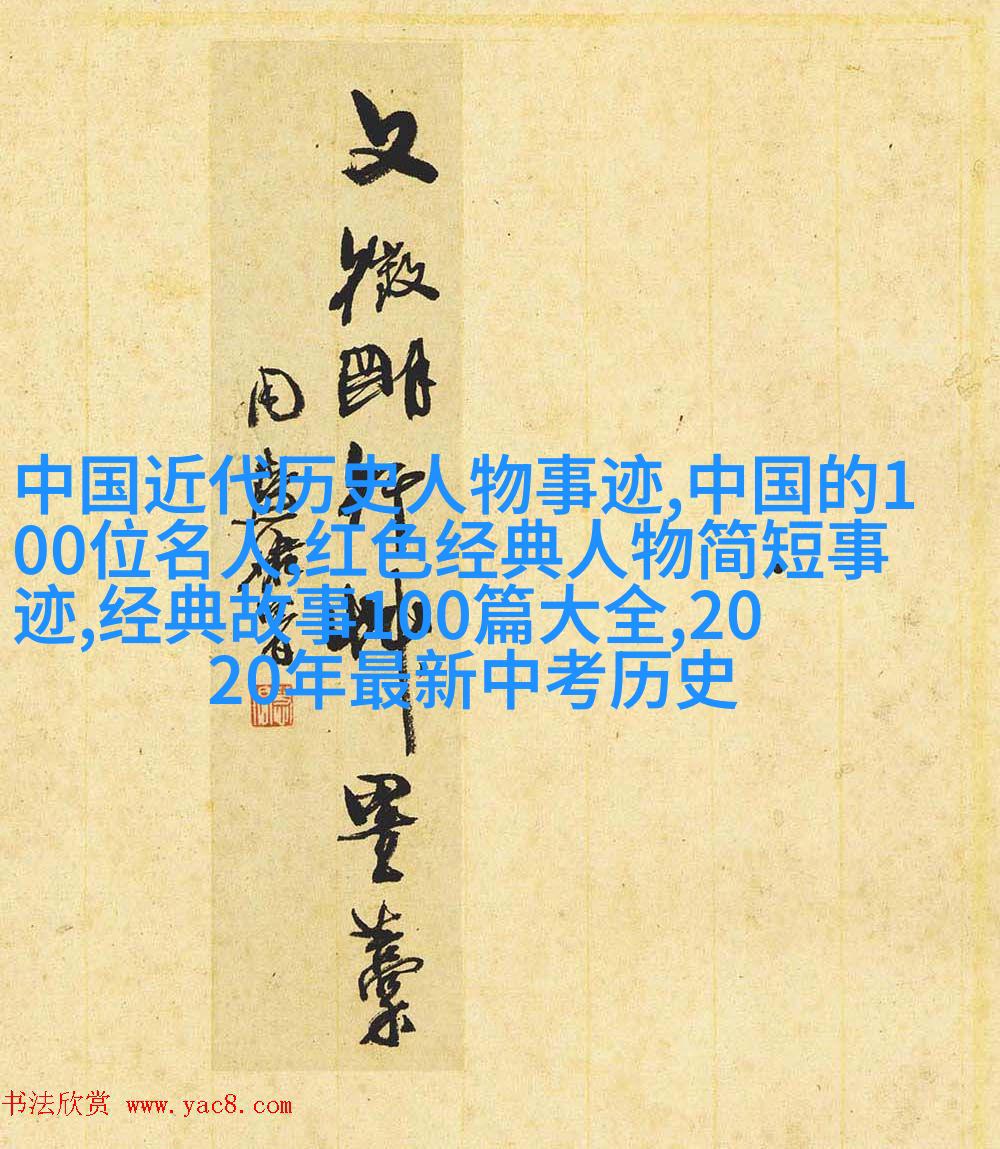 文徵明
墨藁
中国近代历史人物事迹,中国的1
00位名人,红色经典人物简短事
迹,经典故事100篇大全,20
20年最新中考历史
书法欣赏 www.yac8.com